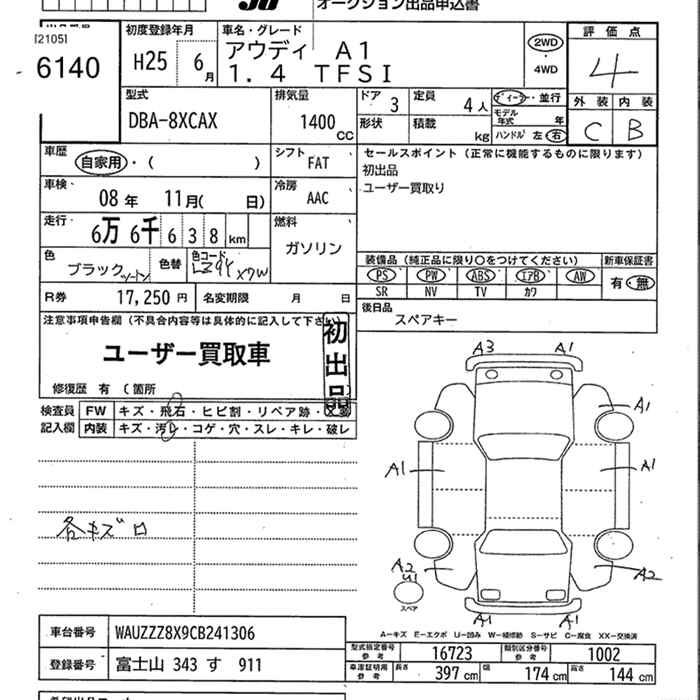 オークション出品申込書
初度登録年月 車名・グレード 評価点
[2105]
6140 H25 6月 アウディ A1
1.4 TFSI
2WD
・
4WD
4
型式 排気量 ドア 3 定員 4人 ディーラー・並行 外装 内装
DBA-8XCAX 1400 CC 形状 積載 kg モデル年式 年 C B
ハンドル 左 右
車歴 自家用・( ) シフト FAT セールスポイント (正常に機能するものに限ります)
初出品
車検 08年 11月( 日) 冷房 AAC ユーザー買取り
走行 6万 6千 6 3 8 km 燃料 ガソリン
色 ブラックツートン 色替 色コード LZ9Y X7W 装備品 (純正品に限り○をつけてください) 新車保証書
PS PW ABS エアB AW 有・無
SR NV TV カワ
R券 17,250円 名変期限 月 日 後日品
スペアキー
注意事項申告欄 (不具合内容等は具体的に記入して下さい)
ユーザー買取車
初出品
修復歴 有 (箇所
検査員 FW キズ・飛石・ヒビ割・リペア跡・
記入欄 内装 キズ・汚レ・コゲ・穴・スレ・キレ・破レ
各キズ□
A3 A1
A1
A1 A1
A2
U1
A2
スペア
A1 A1
A-キズ E-エクボ U-凹み W-補修跡 S-サビ C-腐食 XX-交換済
車台番号 WAUZZZ8X9CB241306
型式指定番号 参考 16723 類別区分番号 参考 1002
登録番号 富士山 343 す 911
車庫証明用 参考 長さ 397 cm 幅 174 cm 高さ 144 cm